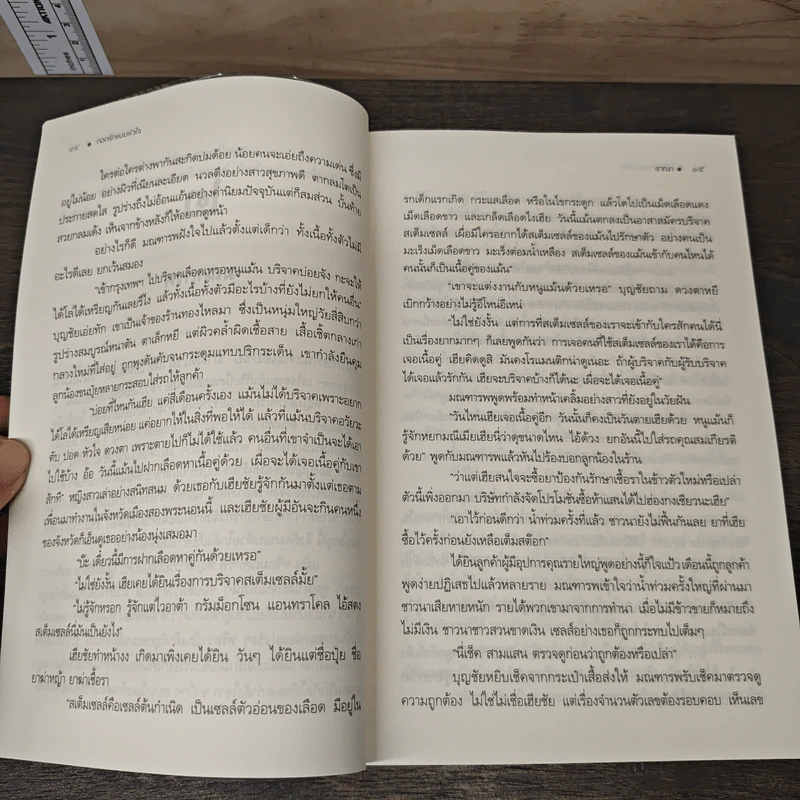 ๑๔ ● กอดรักแนบหัวใจ
ใครต่อใครต่างพากันสะกิดปมด้อย น้อยคนจะเอ่ยถึงความเด่น ซึ่งมี
อยู่ไม่น้อย อย่างผิวที่เนียนละเอียด นวลตึงอย่างสาวสุขภาพดี ตากลมโตเป็น
ประกายสดใส รูปร่างถึงไม่อ้อนแอ้นอย่างค่านิยมปัจจุบันแต่ก็สมส่วน บั้นท้าย
สวยกลมเด้ง เห็นจากข้างหลังก็ให้อยากดูหน้า
อย่างไรก็ดี มณฑารพฝังใจไปแล้วตั้งแต่เด็กว่า ทั้งเนื้อทั้งตัวไม่มี
อะไรดีเลย ยกเว้นสมอง
“เข้ากรุงเทพฯ ไปบริจาคเลือดเหรอหนูแม้น บริจาคบ่อยจัง กะจะให้
ได้โล่ได้เหรียญกันเลยรึไง แล้วทั้งเนื้อทั้งตัวมีอะไรบ้างที่ยังไม่ยกให้คนอื่น”
บุญชัยเอ่ยทัก เขาเป็นเจ้าของร้านทองไหลมา ซึ่งเป็นหนุ่มใหญ่วัยสี่สิบกว่า
รูปร่างสมบูรณ์หนาตัน ตาเล็กหยี แต่ผิวคล้ำผิดเชื้อสาย เสื้อเชิ้ตกลางเก่า
กลางใหม่ที่ใส่อยู่ ถูกพุงดันคับจนกระดุมแทบปริกระเด็น เขากำลังยืนคุม
ลูกน้องขนปุ๋ยหลายกระสอบใส่รถให้ลูกค้า
“บ่อยที่ไหนกันเฮีย แค่สี่เดือนครั้งเอง แม้นไม่ได้บริจาคเพราะอยาก
ได้โล่ได้เหรียญเสียหน่อย แค่อยากให้ในสิ่งที่พอให้ได้ แล้วที่แม้นบริจาคอวัยวะ
ตับ ปอด หัวใจ ดวงตา เพราะตายไปก็ไม่ได้ใช้แล้ว คนอื่นที่เขาจำเป็นจะได้เอา
ไปใช้บ้าง อ้อ วันนี้แม้นไปฝากเลือดหาเนื้อคู่ด้วย เผื่อจะได้เจอเนื้อคู่กับเขา
สักที” หญิงสาวเล่าอย่างสนิทสนม ด้วยเธอกับเฮียชัยรู้จักกันมาตั้งแต่เธอตาม
เพื่อนมาทำงานในจังหวัดเมืองสองพระนอนนี้ และเฮียชัยผู้มีอันจะกินคนหนึ่ง
ของจังหวัดก็เอ็นดูเธออย่างน้องนุ่งเสมอมา
“บ๊ะ เดี๋ยวนี้มีการฝากเลือดหาคู่กันด้วยเหรอ”
“ไม่ใช่ยังงั้น เฮียเคยได้ยินเรื่องการบริจาคสเต็มเซลล์มั้ย”
“ไม่รู้จักหรอก รู้จักแต่ไวอาต้า กรัมม็อกโซน แอนทราโคล ไอ้สเต
สเต็มเซลล์นี่มันเป็นยังไง”
เฮียชัยทำหน้างง เกิดมาเพิ่งเคยได้ยิน วันๆ ได้ยินแต่ชื่อปุ๋ย ชื่อ
ยาฆ่าหญ้า ยาฆ่าเชื้อรา
“สเต็มเซลล์คือเซลล์ต้นกำเนิด เป็นเซลล์ตัวอ่อนของเลือด มีอยู่ใน
ชาณา ● ๑๕
รกเด็กแรกเกิด กระแสเลือด หรือในไขกระดูก แล้วโตไปเป็นเม็ดเลือดแดง
เม็ดเลือดขาว และเกล็ดเลือดไงเฮีย วันนี้แม้นตกลงเป็นอาสาสมัครบริจาค
สเต็มเซลล์ เผื่อมีใครอยากได้สเต็มเซลล์ของแม้นไปรักษาตัว อย่างคนเป็น
มะเร็งเม็ดเลือดขาว มะเร็งต่อมน้ำเหลือง สเต็มเซลล์ของแม้นเข้ากับคนไหนได้
คนนั้นก็เป็นเนื้อคู่ของแม้น”
“เขาจะแต่งงานกับหนูแม้นด้วยเหรอ” บุญชัยถาม ดวงตาหยี
เบิกกว้างอย่างไม่รู้อีโหน่อีเหน่
“ไม่ใช่ยังงั้น แต่การที่สเต็มเซลล์ของเราจะเข้ากับใครสักคนได้นี่
เป็นเรื่องยากมากๆ ก็เลยพูดกันว่า การเจอคนที่ใช้สเต็มเซลล์ของเราได้คือการ
เจอเนื้อคู่ เฮียคิดดูสิ มันคงโรแมนติกน่าดูเนอะ ถ้าผู้บริจาคกับผู้รับบริจาค
ได้เจอแล้วรักกัน เฮียจะบริจาคบ้างก็ได้นะ เผื่อจะได้เจอเนื้อคู่”
มณฑารพพูดพร้อมทำหน้าเคลิ้มอย่างสาวที่ยังอยู่ในวัยฝัน
“วันไหนเฮียเจอเนื้อคู่อีก วันนั้นก็คงเป็นวันตายเฮียด้วย หนูแม้นก็
รู้จักหยกมณีเมียเฮียนี่ว่าดุขนาดไหน ไอ้ด้วง ยกอันนี้ไปใส่รถคุณสมเกียรติ
ด้วย” พูดกับมณฑารพแล้วหันไปร้องบอกลูกน้องในร้าน
“ว่าแต่เฮียสนใจจะซื้อยาป้องกันรักษาเชื้อราในข้าวตัวใหม่หรือเปล่า
ตัวนี้เพิ่งออกมา บริษัทกำลังจัดโปรโมชันซื้อห้าแสนได้ไปฮ่องกงเชียวนะเฮีย”
“เอาไว้ก่อนดีกว่า น้ำท่วมครั้งที่แล้ว ชาวนายังไม่ฟื้นกันเลย ยาที่เฮีย
ซื้อไว้ครั้งก่อนยังเหลือเต็มสต๊อก”
ได้ยินลูกค้าผู้มีอุปการคุณรายใหญ่พูดอย่างนี้ก็ใจแป้ว เดือนนี้ถูกลูกค้า
พูดง่ายปฏิเสธไปแล้วหลายราย มณฑารพเข้าใจว่าน้ำท่วมครั้งใหญ่ที่ผ่านมา
ชาวนาเสียหายหนัก รายได้พวกเขามาจากการทำนา เมื่อไม่มีข้าวขายก็หมายถึง
ไม่มีเงิน ชาวนาชาวสวนขาดเงิน เซลส์อย่างเธอก็ถูกกระทบไปเต็มๆ
“นี่เช็ค สามแสน ตรวจดูก่อนว่าถูกต้องหรือเปล่า”
บุญชัยหยิบเช็คจากกระเป๋าเสื้อส่งให้ มณฑารพรับเช็คมาตรวจดู
ความถูกต้อง ไม่ใช่ไม่เชื่อเฮียชัย แต่เรื่องจำนวนตัวเลขต้องรอบคอบ เห็นเลข